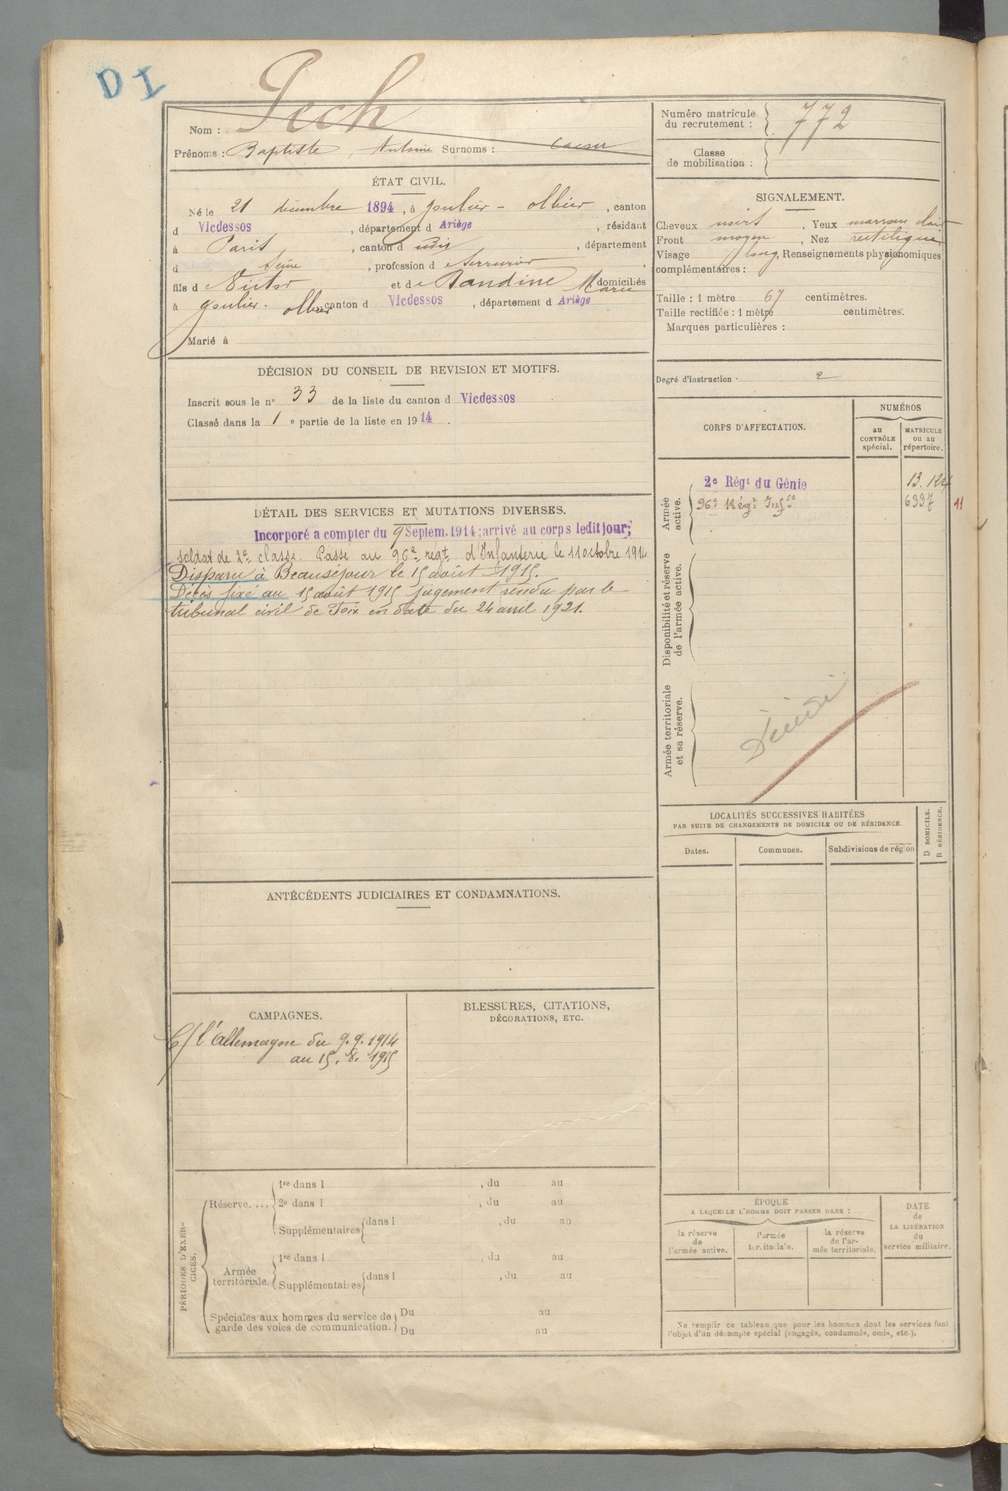 D I
Nom : Pech
Prénoms : Baptiste, Antoine Surnoms :
ÉTAT CIVIL.
Né le 21 décembre 1894, à Goulier - Olbier, canton
d Vicdessos, département d Ariège, résidant
à Paris, canton d udis, département
d Seine, profession d Serrurier
fils d Victor et de Randine Marie domiciliés
à Goulier. Olbier canton d Vicdessos, département d Ariège
Marié à
DÉCISION DU CONSEIL DE REVISION ET MOTIFS.
Inscrit sous le nº 33 de la liste du canton d Vicdessos
Classé dans la 1 e partie de la liste en 1914.
DÉTAIL DES SERVICES ET MUTATIONS DIVERSES.
Incorporé à compter du 9 Septem. 1914; arrivé au corps ledit jour;
soldat de 2e classe. Passé au 96e régt d'Infanterie le 11 octobre 1914
Disparu à Beauséjour le 15 août 1915.
Décès fixé au 15 août 1915 jugement rendu par le
tribunal civil de Foix en date du 24 avril 1921.
ANTÉCÉDENTS JUDICIAIRES ET CONDAMNATIONS.
CAMPAGNES.
C/ l'Allemagne du 9.9.1914
au 15.8.1915
BLESSURES, CITATIONS,
DÉCORATIONS, ETC.
PÉRIODES D'EXERCICES.
Réserve....
1re dans l , du au
2e dans l , du au
Supplémentaires dans l , du au
Armée territoriale
1re dans l , du au
Supplémentaires dans l , du au
Spéciales aux hommes du service de
garde des voies de communication.
Du au
Du au
Numéro matricule
du recrutement : 772
Classe
de mobilisation :
SIGNALEMENT.
Cheveux noirs, Yeux marron clair
Front moyen, Nez rectiligne
Visage long Renseignements physionomiques
complémentaires :
Taille : 1 mètre 67 centimètres.
Taille rectifiée : 1 mètre centimètres.
Marques particulières :
Degré d'instruction : 2
CORPS D'AFFECTATION.
NUMÉROS
au
CONTRÔLE
spécial.
MATRICULE
ou au
répertoire.
Armée
active.
2e Régt du Génie
96e Régt Infie 6337 11
Disponibilité et réserve
de l'armée active.
Armée territoriale
et sa réserve.
Décédé
LOCALITÉS SUCCESSIVES HABITÉES
PAR SUITE DE CHANGEMENTS DE DOMICILE OU DE RÉSIDENCE.
Dates.
Communes.
Subdivisions de région
D DOMICILE.
R RÉSIDENCE.
ÉPOQUE
A LAQUELLE L'HOMME DOIT PASSER DANS :
la réserve
de
l'armée active.
l'armée
territoriale.
la réserve
de l'ar-
mée territoriale.
DATE
de
LA LIBÉRATION
du
service militaire.
Ne remplir ce tableau que pour les hommes dont les services font
l'objet d'un décompte spécial (engagés, condamnés, omis, etc.).